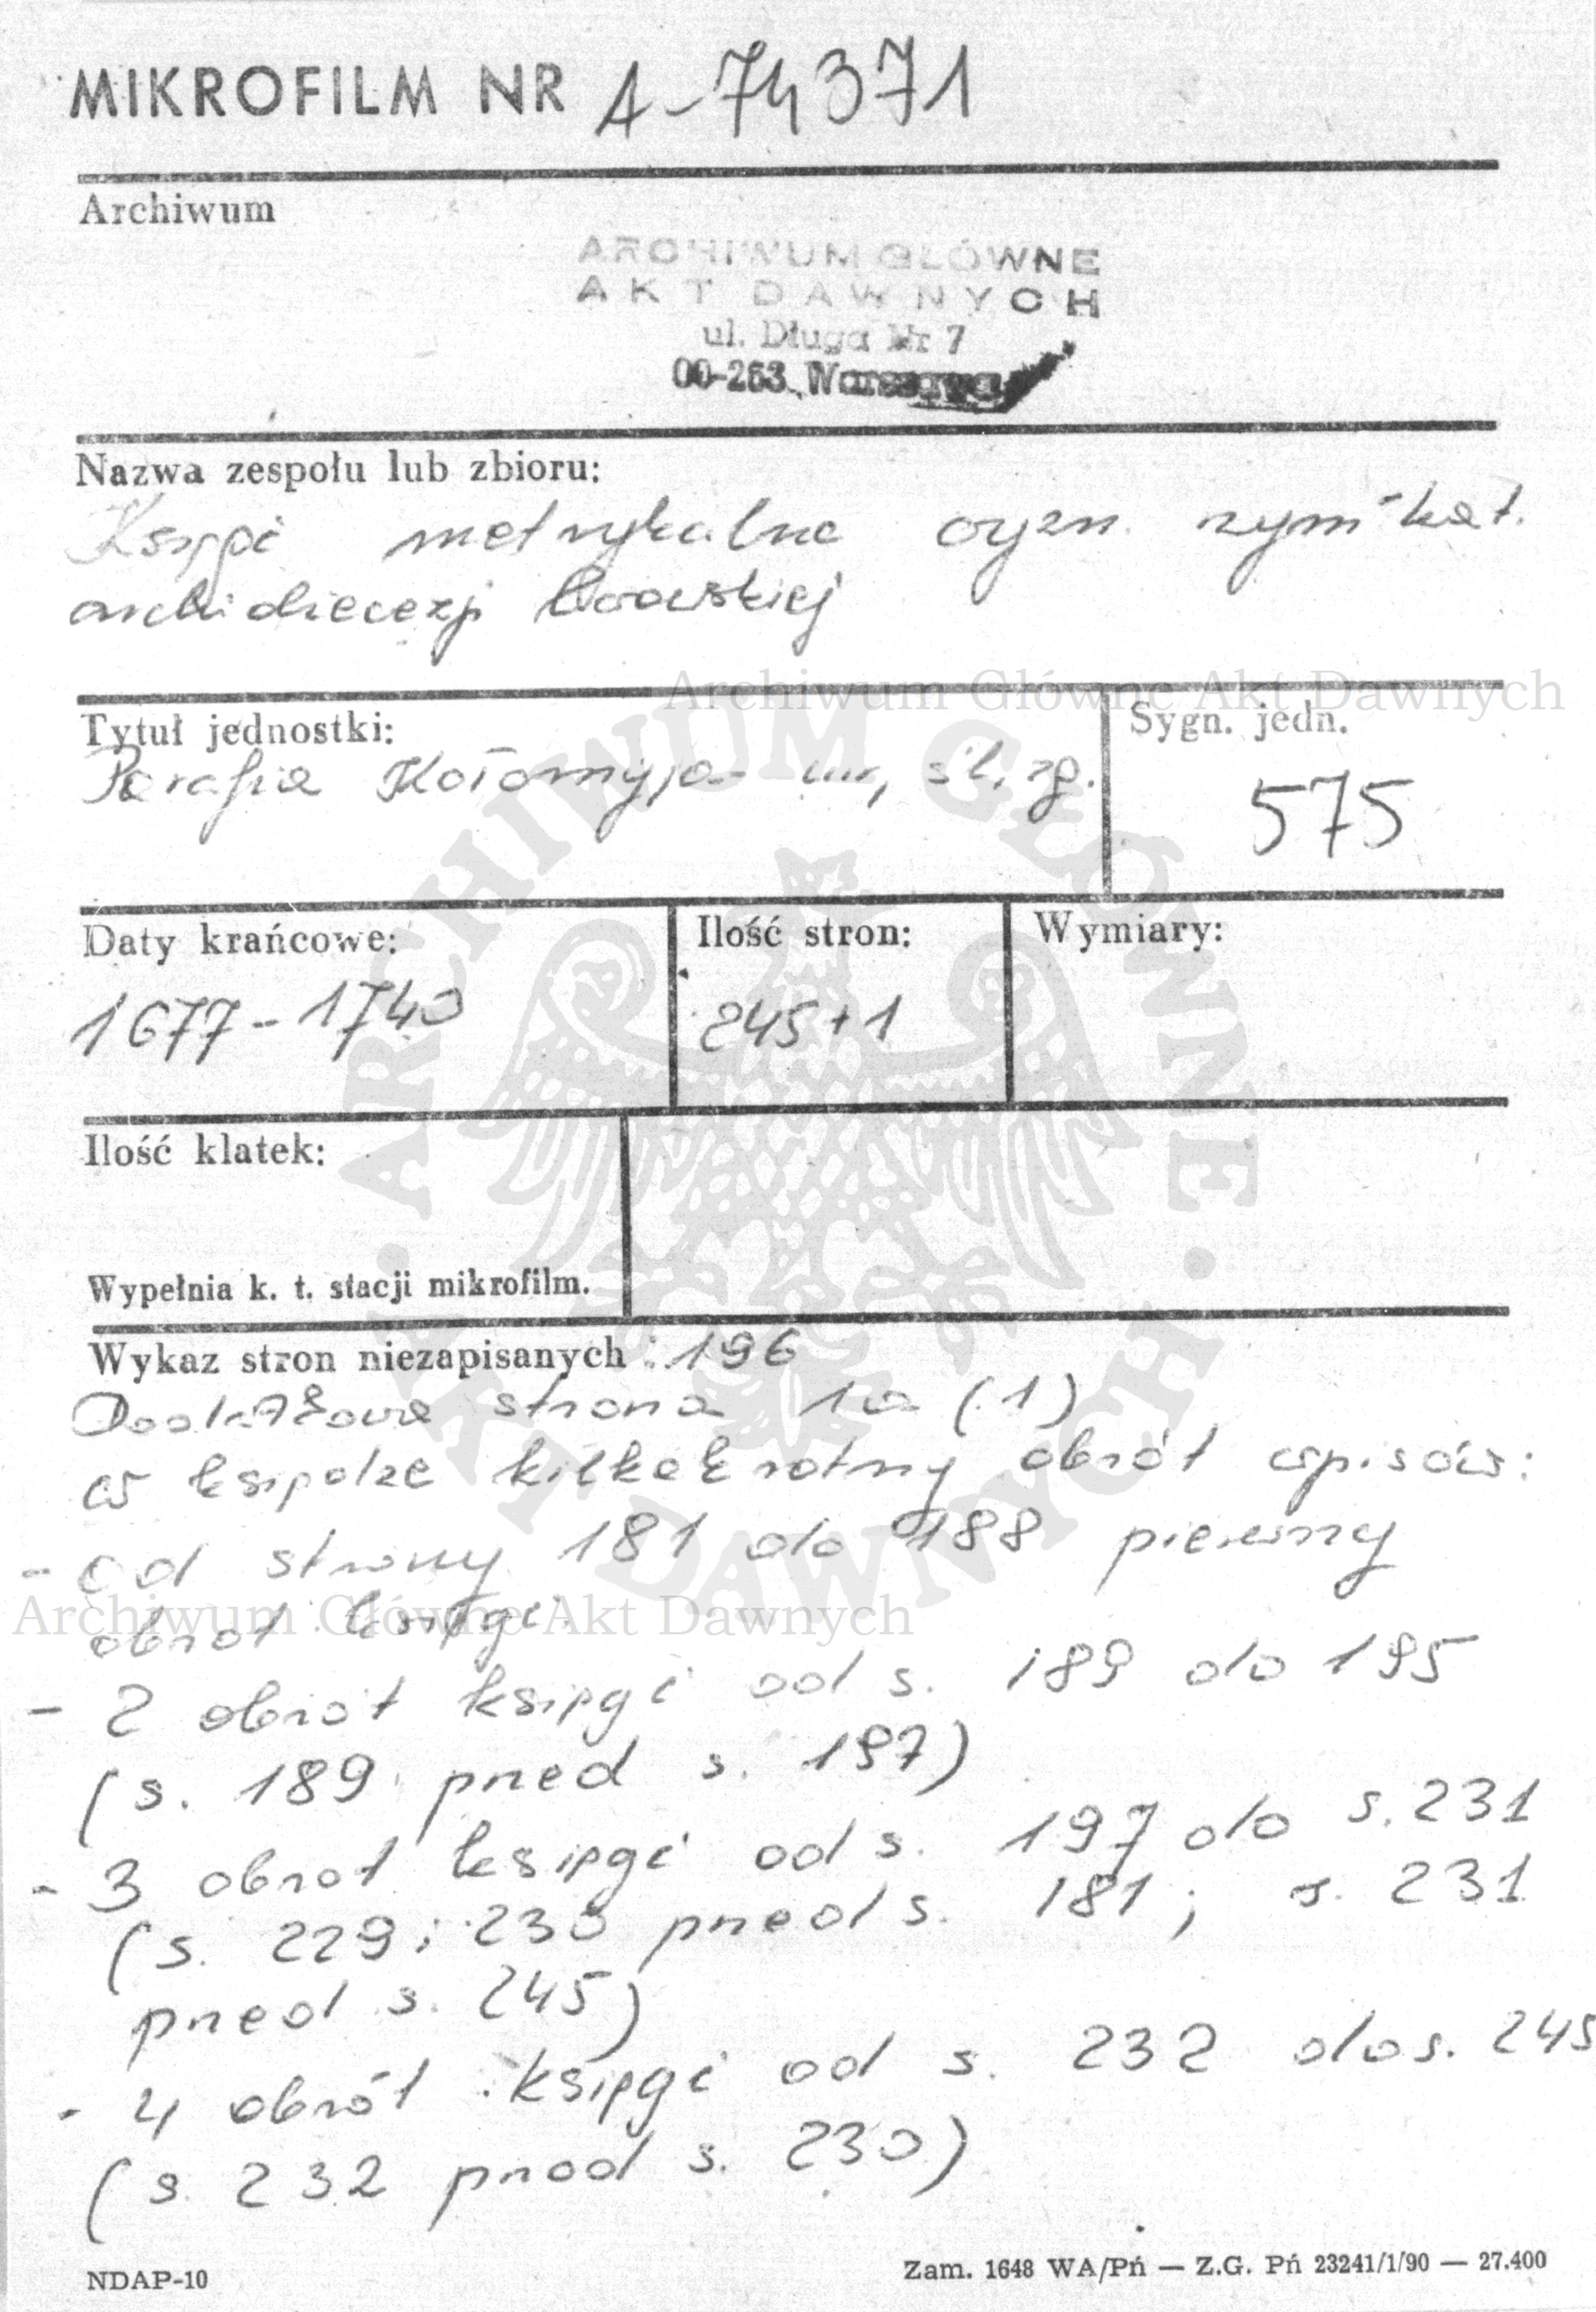 MIKROFILM NR A-74371
Archiwum
ARCHIWUM GŁÓWNE
AKT DAWNYCH
ul. Długa Nr 7
00-263 Warszawa
Nazwa zespołu lub zbioru:
Księgi metrykalne rzym-kat.
archidiecezji lwowskiej
Archiwum Główne Akt Dawnych
Tytuł jednostki:
Parafia Kołomyja - ur, śl, zg.
Sygn. jedn.
575
Daty krańcowe:
1677-1740
Ilość stron:
245+1
Wymiary:
Ilość klatek:
Wypełnia k. t. stacji mikrofilm.
ARCHIWUM GŁÓWNE AKT DAWNYCH
Wykaz stron niezapisanych: 196
Dodatkowa strona 1a (1)
w księdze kilkakrotny obrót wpisów:
- od strony 181 do 188 pierwszy
obrot księgi
Archiwum Główne Akt Dawnych
- 2 obrot księgi od s. 189 do 195
(s. 189 przed s. 197)
- 3 obrot księgi od s. 197 do s. 231
(s. 229 i 230 przed s. 181; s. 231
przed s. 245)
- 4 obrót księgi od s. 232 do s. 245
(s. 232 przed s. 230)
NDAP-10
Zam. 1648 WA/Pń — Z.G. Pń 23241/1/90 — 27.400